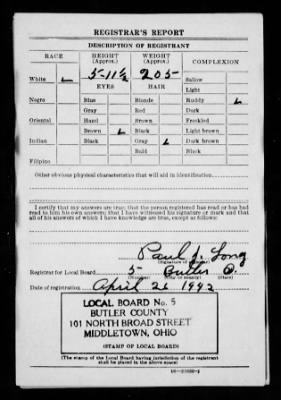 REGISTRAR'S REPORT
DESCRIPTION OF REGISTRANT
RACE HEIGHT (Approx.) WEIGHT (Approx.) COMPLEXION
White 5-11½ 205 Sallow
EYES HAIR Light
Negro Blue Blonde Ruddy
Gray Red Dark
Oriental Hazel Brown Freckled
Brown Black Light brown
Indian Black Gray Dark brown
Bald Black
Filipino
Other obvious physical characteristics that will aid in identification
I certify that my answers are true; that the person registered has read or has had
read to him his own answers; that I have witnessed his signature or mark and that
all of his answers of which I have knowledge are true, except as follows:
Paul J. Long
(Signature of registrar)
Registrar for Local Board 5 Butler O.
(Number) (City or county) (State)
Date of registration April 26 1942
LOCAL BOARD No. 5
BUTLER COUNTY
101 NORTH BROAD STREET
MIDDLETOWN, OHIO
(STAMP OF LOCAL BOARD)
(The stamp of the Local Board having jurisdiction of the registrant
shall be placed in the above space)